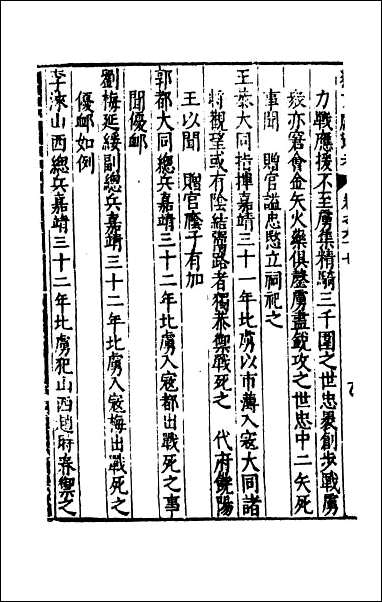 力戰應援不至虜集精騎三千圍之世忠裹創步戰虜
衆亦窘會金矢火藥俱罄虜盡銳攻之世忠中二矢死
事聞　贈官謚忠愍立祠祀之
王恭大同指揮嘉靖三十一年北虜以市薄入寇大同諸
將觀望或有陰結虜路者獨恭禦戰死之　代府饒陽
王以聞　贈官廕子有加
郭都大同總兵嘉靖三十二年北虜入寇都出戰死之事
聞優䘏
劉梅延綏副總兵嘉靖三十二年北虜入寇梅出戰死之
優䘏如例
李淶山西總兵嘉靖三十二年北虜犯山西趙府春禦之